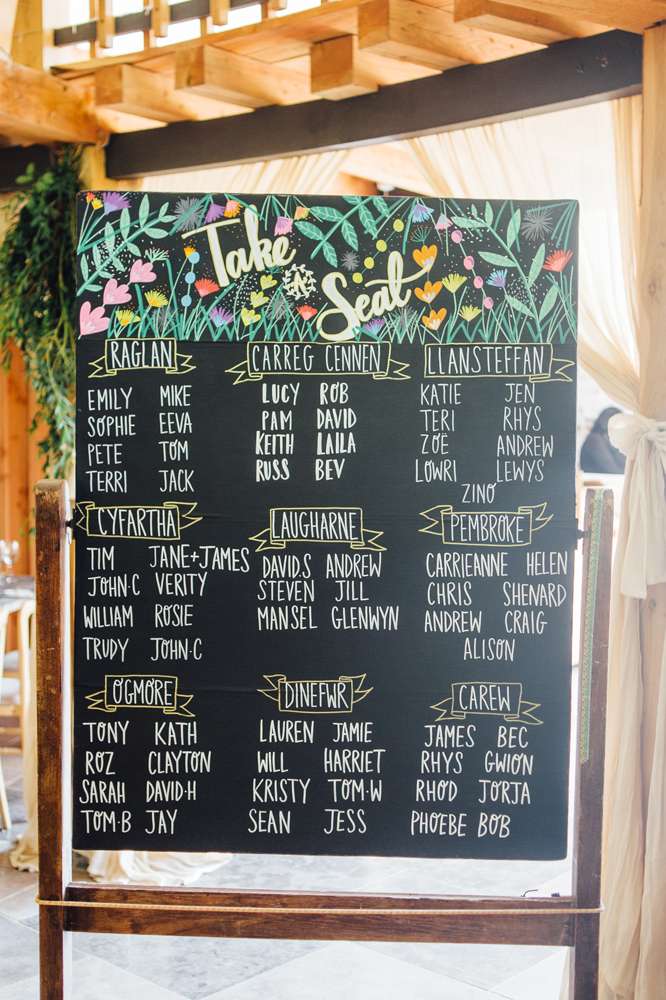 Take
A
Seat
RAGLAN
EMILY MIKE
SOPHIE EEVA
PETE TOM
TERRI JACK
CARREG CENNEN
LUCY ROB
PAM DAVID
KEITH LAILA
RUSS BEV
LLANSTEFFAN
KATIE JEN
TERI RHYS
ZOË ANDREW
LOWRI LEWYS
ZINO
CYFARTHA
TIM JANE+JAMES
JOHN·C VERITY
WILLIAM ROSIE
TRUDY JOHN·C
LAUGHARNE
DAVID.S ANDREW
STEVEN JILL
MANSEL GLENWYN
PEMBROKE
CARRIEANNE HELEN
CHRIS SHENARD
ANDREW CRAIG
ALISON
OGMORE
TONY KATH
ROZ CLAYTON
SARAH DAVID·H
TOM·B JAY
DINEFWR
LAUREN JAMIE
WILL HARRIET
KRISTY TOM·W
SEAN JESS
CAREW
JAMES BEC
RHYS GWION
RHOD JORJA
PHOEBE BOB